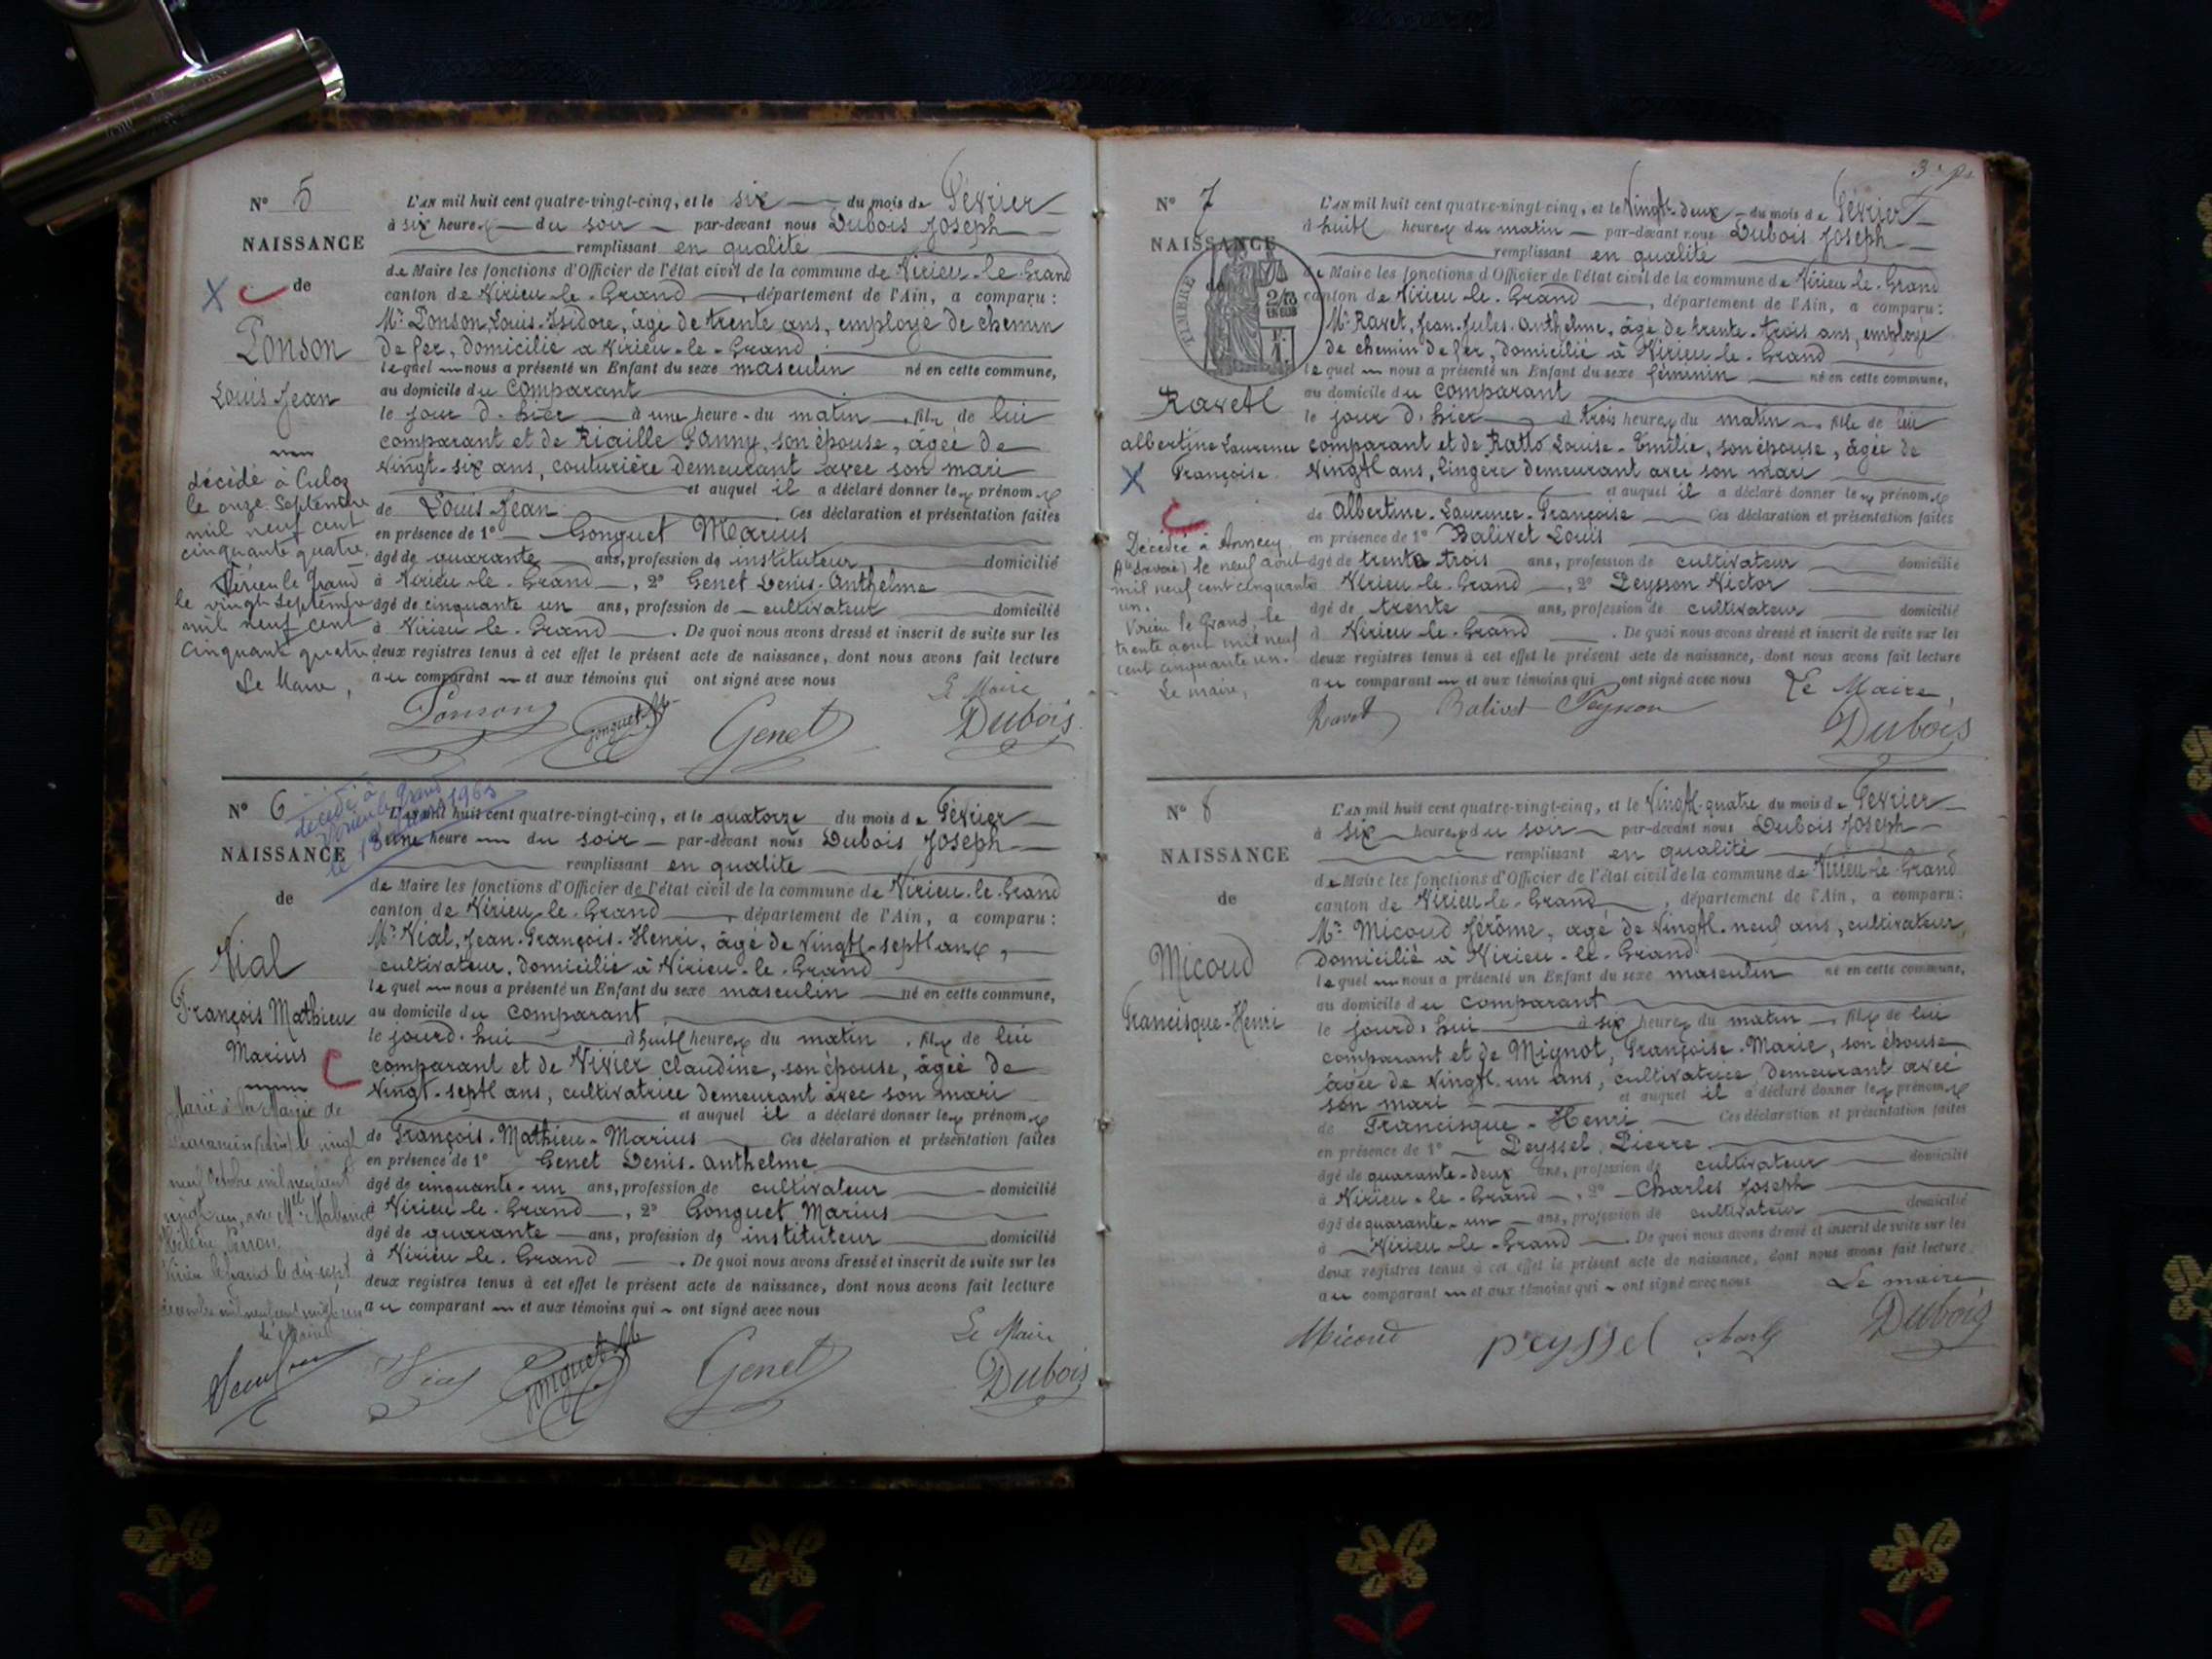 N° 5
NAISSANCE
de
Ponson
Louis Jean
décédé à Culoz
le onze Septembre
mil neuf cent
cinquante quatre
Virieu le Grand
le vingt Septembre
mil neuf cent
cinquante quatre
Le Maire,
L'AN mil huit cent quatre-vingt-cinq, et le six du mois de Février
à six heures du soir par-devant nous Dubois Joseph
remplissant en qualité
de Maire les fonctions d'Officier de l'état civil de la commune de Virieu-le-Grand
canton de Virieu-le-Grand, département de l'Ain, a comparu :
Mr Ponson, Louis-Isidore, âgé de trente ans, employé de chemin
de fer, domicilié à Virieu-le-Grand
lequel nous a présenté un Enfant du sexe masculin né en cette commune,
au domicile du comparant
le jour d'hier à une heure du matin, fils de lui
comparant et de Riaille Fanny, son épouse, âgée de
vingt-six ans, couturière demeurant avec son mari
et auquel il a déclaré donner les prénoms
de Louis Jean Ces déclaration et présentation faites
en présence de 1° Gonguet Marius
âgé de quarante ans, profession de instituteur domicilié
à Virieu-le-Grand, 2° Genet Denis-Anthelme
âgé de cinquante un ans, profession de cultivateur domicilié
à Virieu-le-Grand. De quoi nous avons dressé et inscrit de suite sur les
deux registres tenus à cet effet le présent acte de naissance, dont nous avons fait lecture
au comparant et aux témoins qui ont signé avec nous
Le Maire
Ponson Gonguet Genet Dubois
N° 6
décédé à
Virieu le Grand
NAISSANCE
de
Vial
François Mathieu
Marius
Marié à la Mairie de
le vingt
neuf Octobre mil neuf cent
vingt un, avec Melle
Hélène Perron
Virieu le Grand le dix-sept
décembre mil neuf cent vingt un
le Maire
L'AN mil huit cent quatre-vingt-cinq, et le quatorze du mois de Février
à une heure du soir par-devant nous Dubois Joseph
remplissant en qualité
de Maire les fonctions d'Officier de l'état civil de la commune de Virieu-le-Grand
canton de Virieu-le-Grand, département de l'Ain, a comparu :
Mr Vial, Jean-François-Henri, âgé de vingt-sept ans,
cultivateur, domicilié à Virieu-le-Grand
lequel nous a présenté un Enfant du sexe masculin né en cette commune,
au domicile du comparant
le jourd'hui à huit heures du matin, fils de lui
comparant et de Vivier Claudine, son épouse, âgée de
vingt-sept ans, cultivatrice demeurant avec son mari
et auquel il a déclaré donner les prénoms
de François-Mathieu-Marius Ces déclaration et présentation faites
en présence de 1° Genet Denis-Anthelme
âgé de cinquante-un ans, profession de cultivateur domicilié
à Virieu-le-Grand, 2° Gonguet Marius
âgé de quarante ans, profession de instituteur domicilié
à Virieu-le-Grand. De quoi nous avons dressé et inscrit de suite sur les
deux registres tenus à cet effet le présent acte de naissance, dont nous avons fait lecture
au comparant et aux témoins qui ont signé avec nous
Le Maire
Vial Gonguet Genet Dubois
N° 7
NAISSANCE
TIMBRE
Ravet
Albertine Laurence
Françoise
Décédée à Annecy
(Hte Savoie) le neuf août
mil neuf cent cinquante
un.
Virieu le Grand, le
trente août mil neuf
cent cinquante un.
Le maire,
L'AN mil huit cent quatre-vingt cinq, et le vingt-deux du mois de Février
à huit heures du matin par-devant nous Dubois Joseph
remplissant en qualité
de Maire les fonctions d'Officier de l'état civil de la commune de Virieu-le-Grand
canton de Virieu-le-Grand, département de l'Ain, a comparu :
Mr Ravet, Jean-Jules-Anthelme, âgé de trente-trois ans, employé
de chemin de fer, domicilié à Virieu-le-Grand
lequel nous a présenté un Enfant du sexe féminin né en cette commune,
au domicile du comparant
le jour d'hier à trois heures du matin, fille de lui
comparant et de Ratto Louise-Emilie, son épouse, âgée de
vingt ans, lingère demeurant avec son mari
et auquel il a déclaré donner les prénoms
de Albertine-Laurence-Françoise Ces déclaration et présentation faites
en présence de 1° Balivet Louis
âgé de trente trois ans, profession de cultivateur domicilié
Virieu-le-Grand, 2° Peysson Victor
âgé de trente ans, profession de cultivateur domicilié
à Virieu-le-Grand. De quoi nous avons dressé et inscrit de suite sur les
deux registres tenus à cet effet le présent acte de naissance, dont nous avons fait lecture
au comparant et aux témoins qui ont signé avec nous
Le Maire,
Ravet Balivet Peysson Dubois
N° 8
NAISSANCE
de
Micoud
Francisque-Henri
L'AN mil huit cent quatre-vingt-cinq, et le vingt-quatre du mois de Février
à six heures du soir par-devant nous Dubois Joseph
remplissant en qualité
de Maire les fonctions d'Officier de l'état civil de la commune de Virieu-le-Grand
canton de Virieu-le-Grand, département de l'Ain, a comparu :
Mr Micoud Jérôme, âgé de vingt-neuf ans, cultivateur,
domicilié à Virieu-le-Grand
lequel nous a présenté un Enfant du sexe masculin né en cette commune,
au domicile du comparant
le jourd'hui à six heures du matin, fils de lui
comparant et de Mignot, Françoise-Marie, son épouse
âgée de vingt-un ans, cultivatrice demeurant avec
son mari et auquel il a déclaré donner les prénoms
de Francisque-Henri Ces déclaration et présentation faites
en présence de 1° Peyssel, Pierre
âgé de quarante-deux ans, profession de cultivateur domicilié
à Virieu-le-Grand, 2° Charles Joseph
âgé de quarante-un ans, profession de cultivateur domicilié
à Virieu-le-Grand. De quoi nous avons dressé et inscrit de suite sur les
deux registres tenus à cet effet le présent acte de naissance, dont nous avons fait lecture
au comparant et aux témoins qui ont signé avec nous
Le maire
Micoud peyssel Charles Dubois